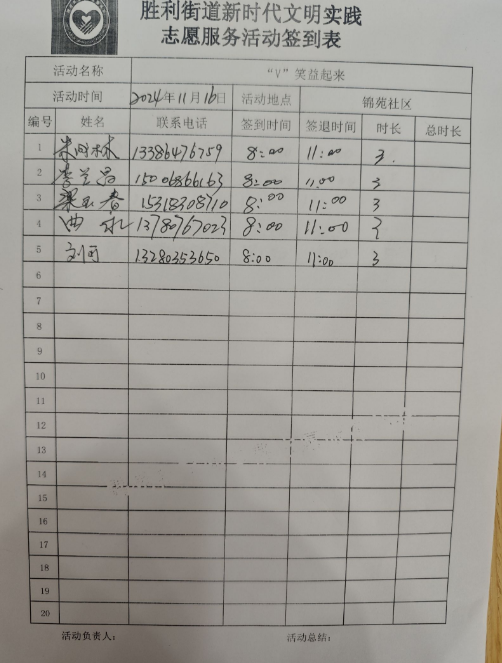 胜利街道新时代文明实践
志愿服务活动签到表
活动名称 “V”笑益起来
活动时间 2024年11月16日 活动地点 锦苑社区
编号 姓名 联系电话 签到时间 签退时间 时长 总时长
1 13386476759 8:00 11:00 3.
2 李兰昌 15006866163 8:00 11:00 3
3 梁玉春 15318308710 8:00 11:00 3
4 曲 13780767023 8:00 11:00 3
5 刘河 13280353650 8:00 11:00 3
6
7
8
9
10
11
12
13
14
15
16
17
18
19
20
活动负责人: 活动总结: